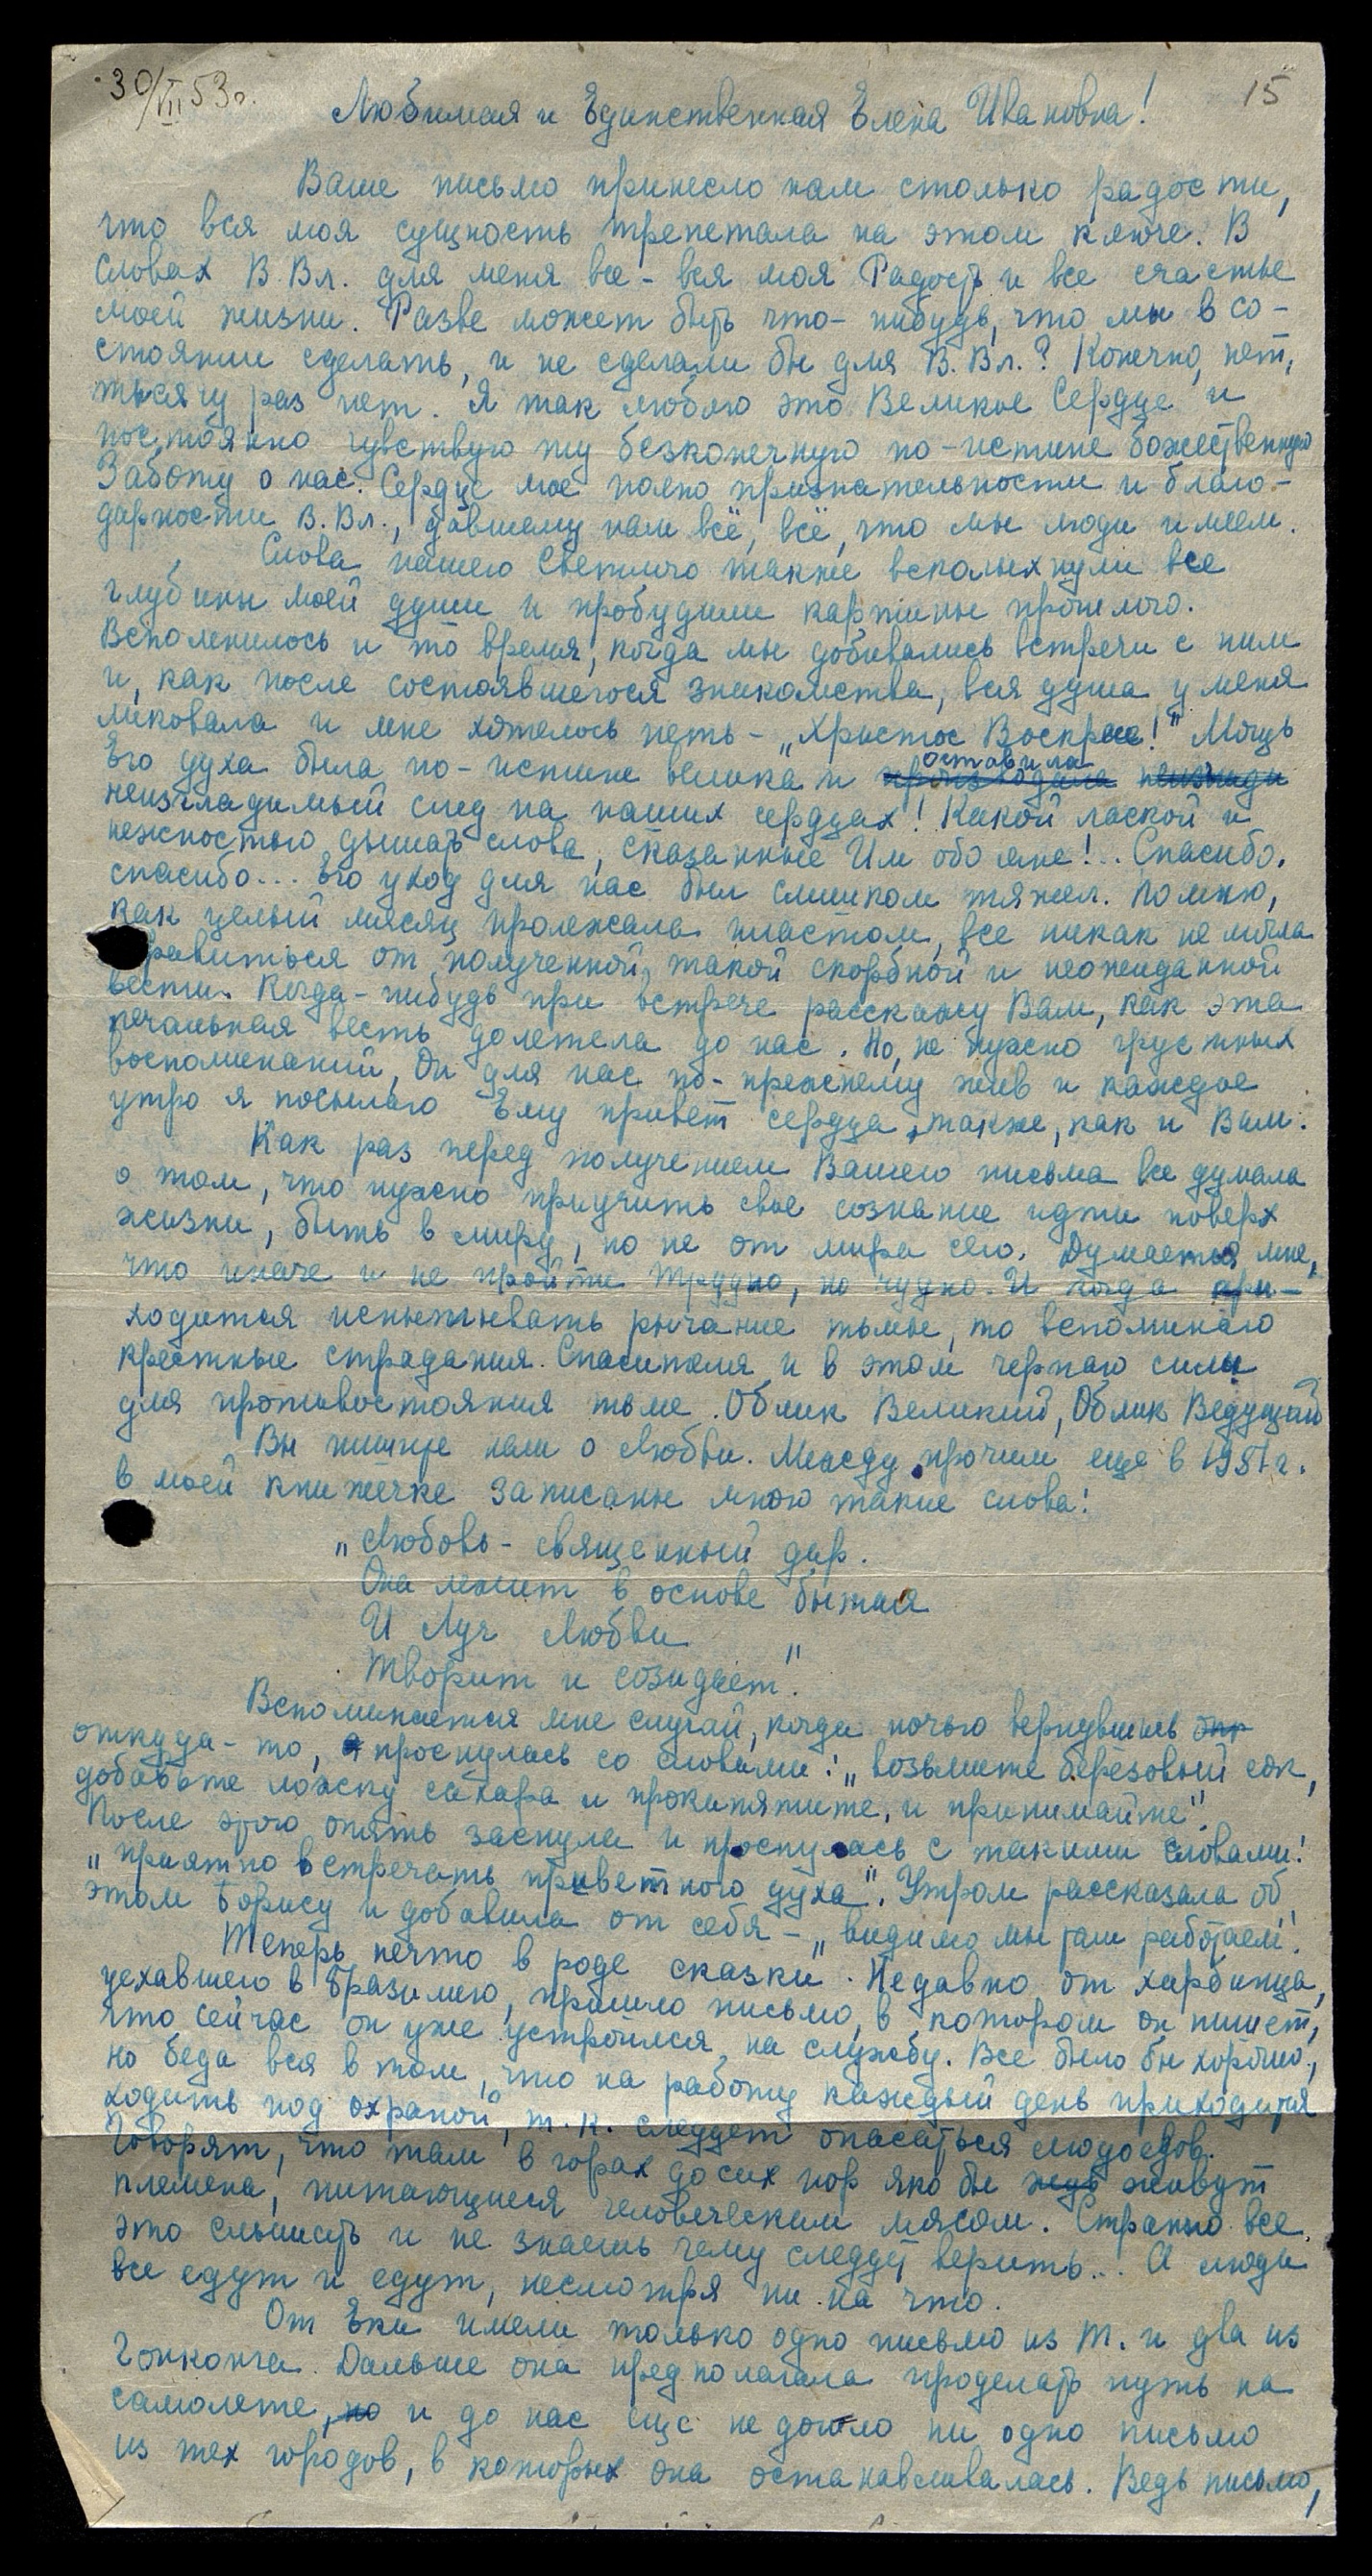 30/VII 53г.
15
Любимая и Единственная Елена Ивановна!
Ваше письмо принесло нам столько радости,
что вся моя сущность трепетала на этом ключе. В
словах В.Вл. для меня все - вся моя Радость и все счастье
моей жизни. Разве может быть что-нибудь, что мы в со-
стоянии сделать, и не сделали бы для В.Вл.? Конечно, нет,
тысячу раз нет. Я так люблю это Великое Сердце и
постоянно чувствую ту безконечную по-истине божественную
Заботу о нас. Сердце мое полно признательности и благо-
дарности В.Вл., давшему нам всё, всё, что мы люди имеем.
Слова нашего Светлого также всколыхнули все
глубины моей души и пробудили картины прошлого.
Вспомнилось и то время, когда мы добивались встречи с ним
и, как после состоявшегося знакомства, вся душа у меня
ликовала и мне хотелось петь - „Христос Воскресе!" Мощь
Его духа была по-истине велика и оставила
неизгладимый след на наших сердцах! Какой лаской и
нежностью дышат слова, сказанные Им обо мне!.. Спасибо,
спасибо... Его уход для нас был слишком тяжел. Помню,
как целый месяц пролежала пластом, все никак не могла
правиться от полученной, такой скорбной и неожиданной
вести. Когда-нибудь при встрече расскажу Вам, как эта
печальная весть долетела до нас. Но, не нужно грустных
воспоминаний, Он для нас по-прежнему жив и каждое
утро я посылаю Ему привет сердца, также, как и Вам.
Как раз перед получением Вашего письма все думала
о том, что нужно приучить свое сознание идти поверх
жизни, быть в миру, но не от мира сего. Думается мне,
что иначе и не пройти. Трудно, но чудно. И когда при-
ходится испытывать рычание тьмы, то вспоминаю
крестные страдания Спасителя и в этом черпаю силы
для противостояния тьме. Облик Великий, Облик Ведущий
Вы пишите нам о Любви. Между прочим еще в 1951 г.
в моей книжечке записаны мною такие слова:
„Любовь - священный дар.
Она лежит в основе бытия
И Луч Любви
Творит и созидает".
Вспоминается мне случай, когда ночью вернувшись
откуда-то, я проснулась со словами: „возьмите березовый сок,
добавьте ложку сахара и прокипятите, и принимайте".
После этого опять заснула и проснулась с такими словами:
„приятно встречать приветного духа". Утром рассказала об
этом Борису и добавила от себя - „видимо мы там работаем".
Теперь нечто в роде сказки. Недавно от харбинца,
уехавшего в Бразилию, пришло письмо, в котором он пишет,
что сейчас он уже устроился на службу. Все было бы хорошо,
но беда вся в том, что на работу каждый день приходится
ходить под охраной, т.к. следует опасаться людоедов.
Говорят, что там в горах до сих пор яко бы живут
племена, питающиеся человеческим мясом. Странно все
это слышать и не знаешь чему следует верить... А люди
все едут и едут, несмотря ни на что.
От Еки имели только одно письмо из Т. и два из
Гонконга. Дальше она предполагала проделать путь на
самолете, но и до нас еще не дошло ни одно письмо
из тех городов, в которых она останавливалась. Ведь письмо,